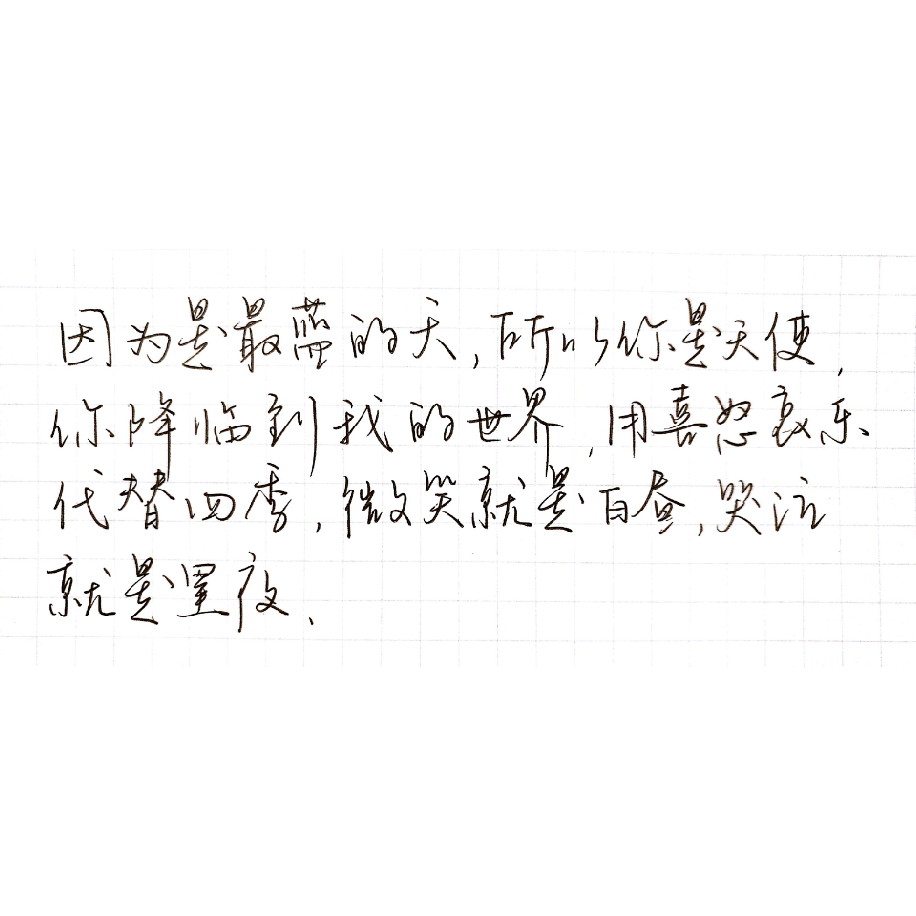 因为是最蓝的天,所以你是天使,
你降临到我的世界,用喜怒哀乐
代替四季,微笑就是白昼,哭泣
就是黑夜、